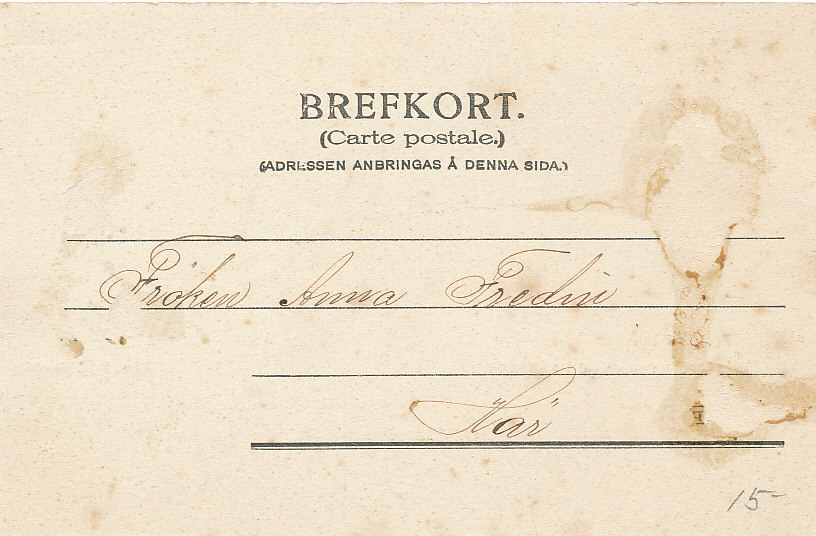 BREFKORT.
(Carte postale.)
(ADRESSEN ANBRINGAS Å DENNA SIDA.)
Fröken Anna Fredin
Här
15-